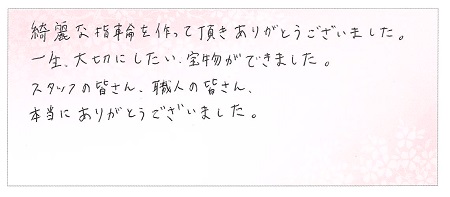 綺麗な指輪を作って頂きありがとうございました。
一生、大切にしたい、宝物ができました。
スタッフの皆さん、職人の皆さん、
本当にありがとうございました。